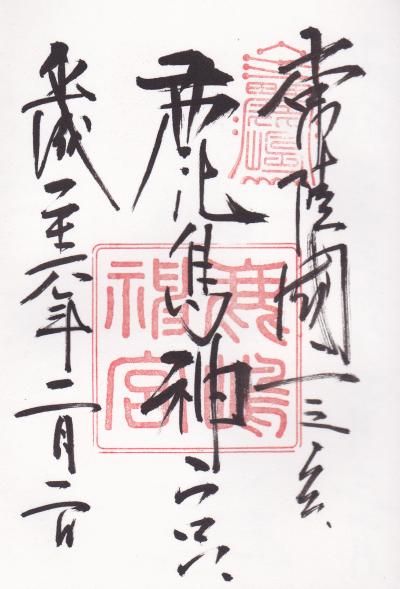 常陸國一之宮
鹿島神宮
平成二十六年二月二日
鹿島神宮